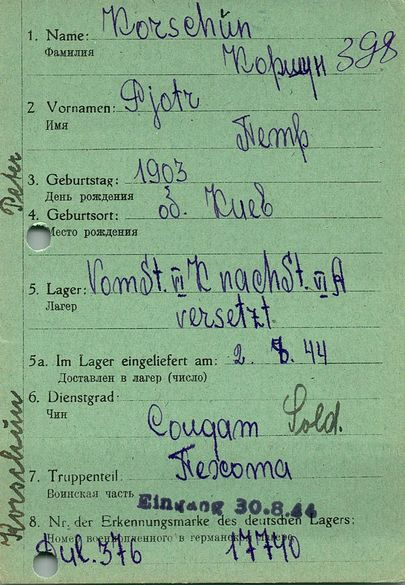 1. Name: Korschün
Фамилия
Коршун 398
2 Vornamen: Pjotr
Имя
Петр
3. Geburtstag: 1903
День рождения
4. Geburtsort: об. Киев
Место рождения
5. Lager: Vom St. VI K nach St. VI A
Лагер
versetzt
5a. Im Lager eingeliefert am: 2. 8. 44
Доставлен в лагер (число)
6. Dienstgrad:
Чин
Солдат Sold.
7. Truppenteil: Пехота
Воинская часть
Eingang 30.8.44
8. Nr. der Erkennungsmarke des deutschen Lagers:
Номер военнопленного в германском лагере
Dul. 376 17740
Peter
Korschün